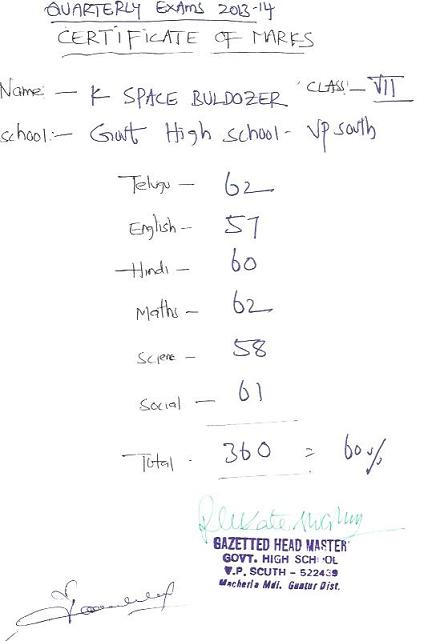 QUARTERLY EXAMS 2013-14
CERTIFICATE OF MARKS
Name: — K SPACE BULDOZER CLASS:- VII
School:- Govt High School - VP South
Telugu — 62
English - 57
Hindi - 60
Maths - 62
Sciene - 58
Social — 61
Total - 360 = 60%
GAZETTED HEAD MASTER
GOVT. HIGH SCHOOL
V.P. SOUTH - 522439
Macherla Mdl. Guntur Dist.